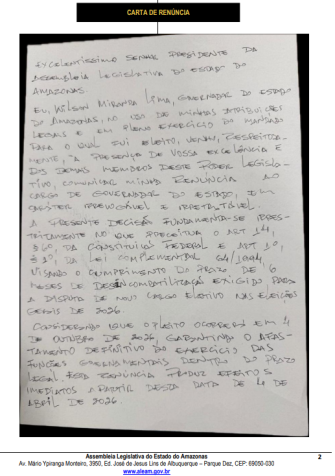 CARTA DE RENÚNCIA
EXCELENTÍSSIMO SENHOR PRESIDENTE DA
ASSEMBLEIA LEGISLATIVA DO ESTADO DO
AMAZONAS.
EU, WILSON MIRANDA LIMA, GOVERNADOR DO ESTADO
DO AMAZONAS, NO USO DE MINHAS ATRIBUIÇÕES
LEGAIS E EM PLENO EXERCÍCIO DO MANDATO
PARA O QUAL FUI ELEITO, VENHO, RESPEITOSA-
MENTE, À PRESENÇA DE VOSSA EXCELÊNCIA E
DOS DEMAIS MEMBROS DESTE PODER LEGISLA-
TIVO, COMUNICAR MINHA RENÚNCIA AO
CARGO DE GOVERNADOR DO ESTADO, EM
CARÁTER IRREVOGÁVEL E IRRETRATÁVEL.
A PRESENTE DECISÃO FUNDAMENTA-SE
NO QUE PRECEITUA O ART 14,
§ 6º, DA CONSTITUIÇÃO FEDERAL E ART 1º,
DA LEI COMPLEMENTAR 64/1990,
VISANDO O CUMPRIMENTO DO PRAZO DE 6
MESES DE DESINCOMPATIBILIZAÇÃO EXIGIDO PARA
A DISPUTA DE NOVO CARGO ELETIVO NAS ELEIÇÕES
GERAIS DE 2026.
CONSIDERANDO QUE O PLEITO OCORRERÁ EM 4
DE OUTUBRO DE 2026, GARANTINDO O AFAS-
TAMENTO DEFINITIVO DO EXERCÍCIO DAS
FUNÇÕES GOVERNAMENTAIS DENTRO DO PRAZO
LEGAL. ESSA RENÚNCIA PRODUZ EFEITOS
IMEDIATOS A PARTIR DESTA DATA DE 4 DE
ABRIL DE 2026.
Assembleia Legislativa do Estado do Amazonas
Av. Mário Ypiranga Monteiro, 3950, Ed. José de Jesus Lins de Albuquerque – Parque Dez, CEP: 69050-030
www.aleam.gov.br
2